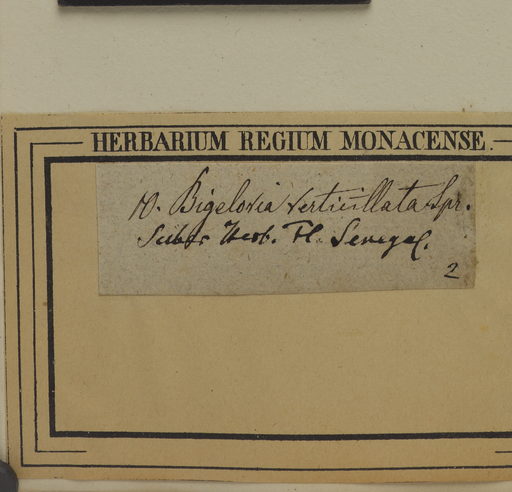 HERBARIUM REGIUM MONACENSE.
10. Bigelovia verticillata Spr.
Sieber Herb. Fl. Senegal.
2